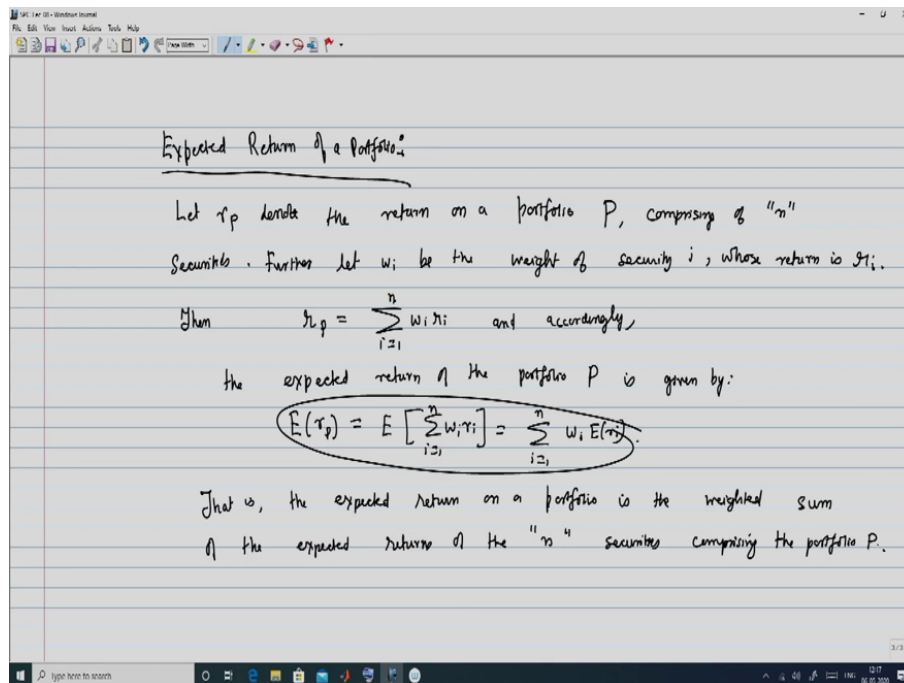 SPC Lec 08 - Windows Journal
File Edit View Insert Actions Tools Help
Page Width
Expected Return of a Portfolio:
Let r_p denote the return on a portfolio P, comprising of "n"
Securities. Further let w_i be the weight of security i, whose return is r_i.
Then r_p = ∑_{i=1}^{n} w_i r_i and accordingly,
the expected return of the portfolio P is given by:
E(r_p) = E [∑_{i=1}^{n} w_i r_i] = ∑_{i=1}^{n} w_i E(r_i).
That is, the expected return on a portfolio is the weighted sum
of the expected returns of the "n" securities comprising the portfolio P.
3/3
Type here to search
ENG
12:17
06-05-2020